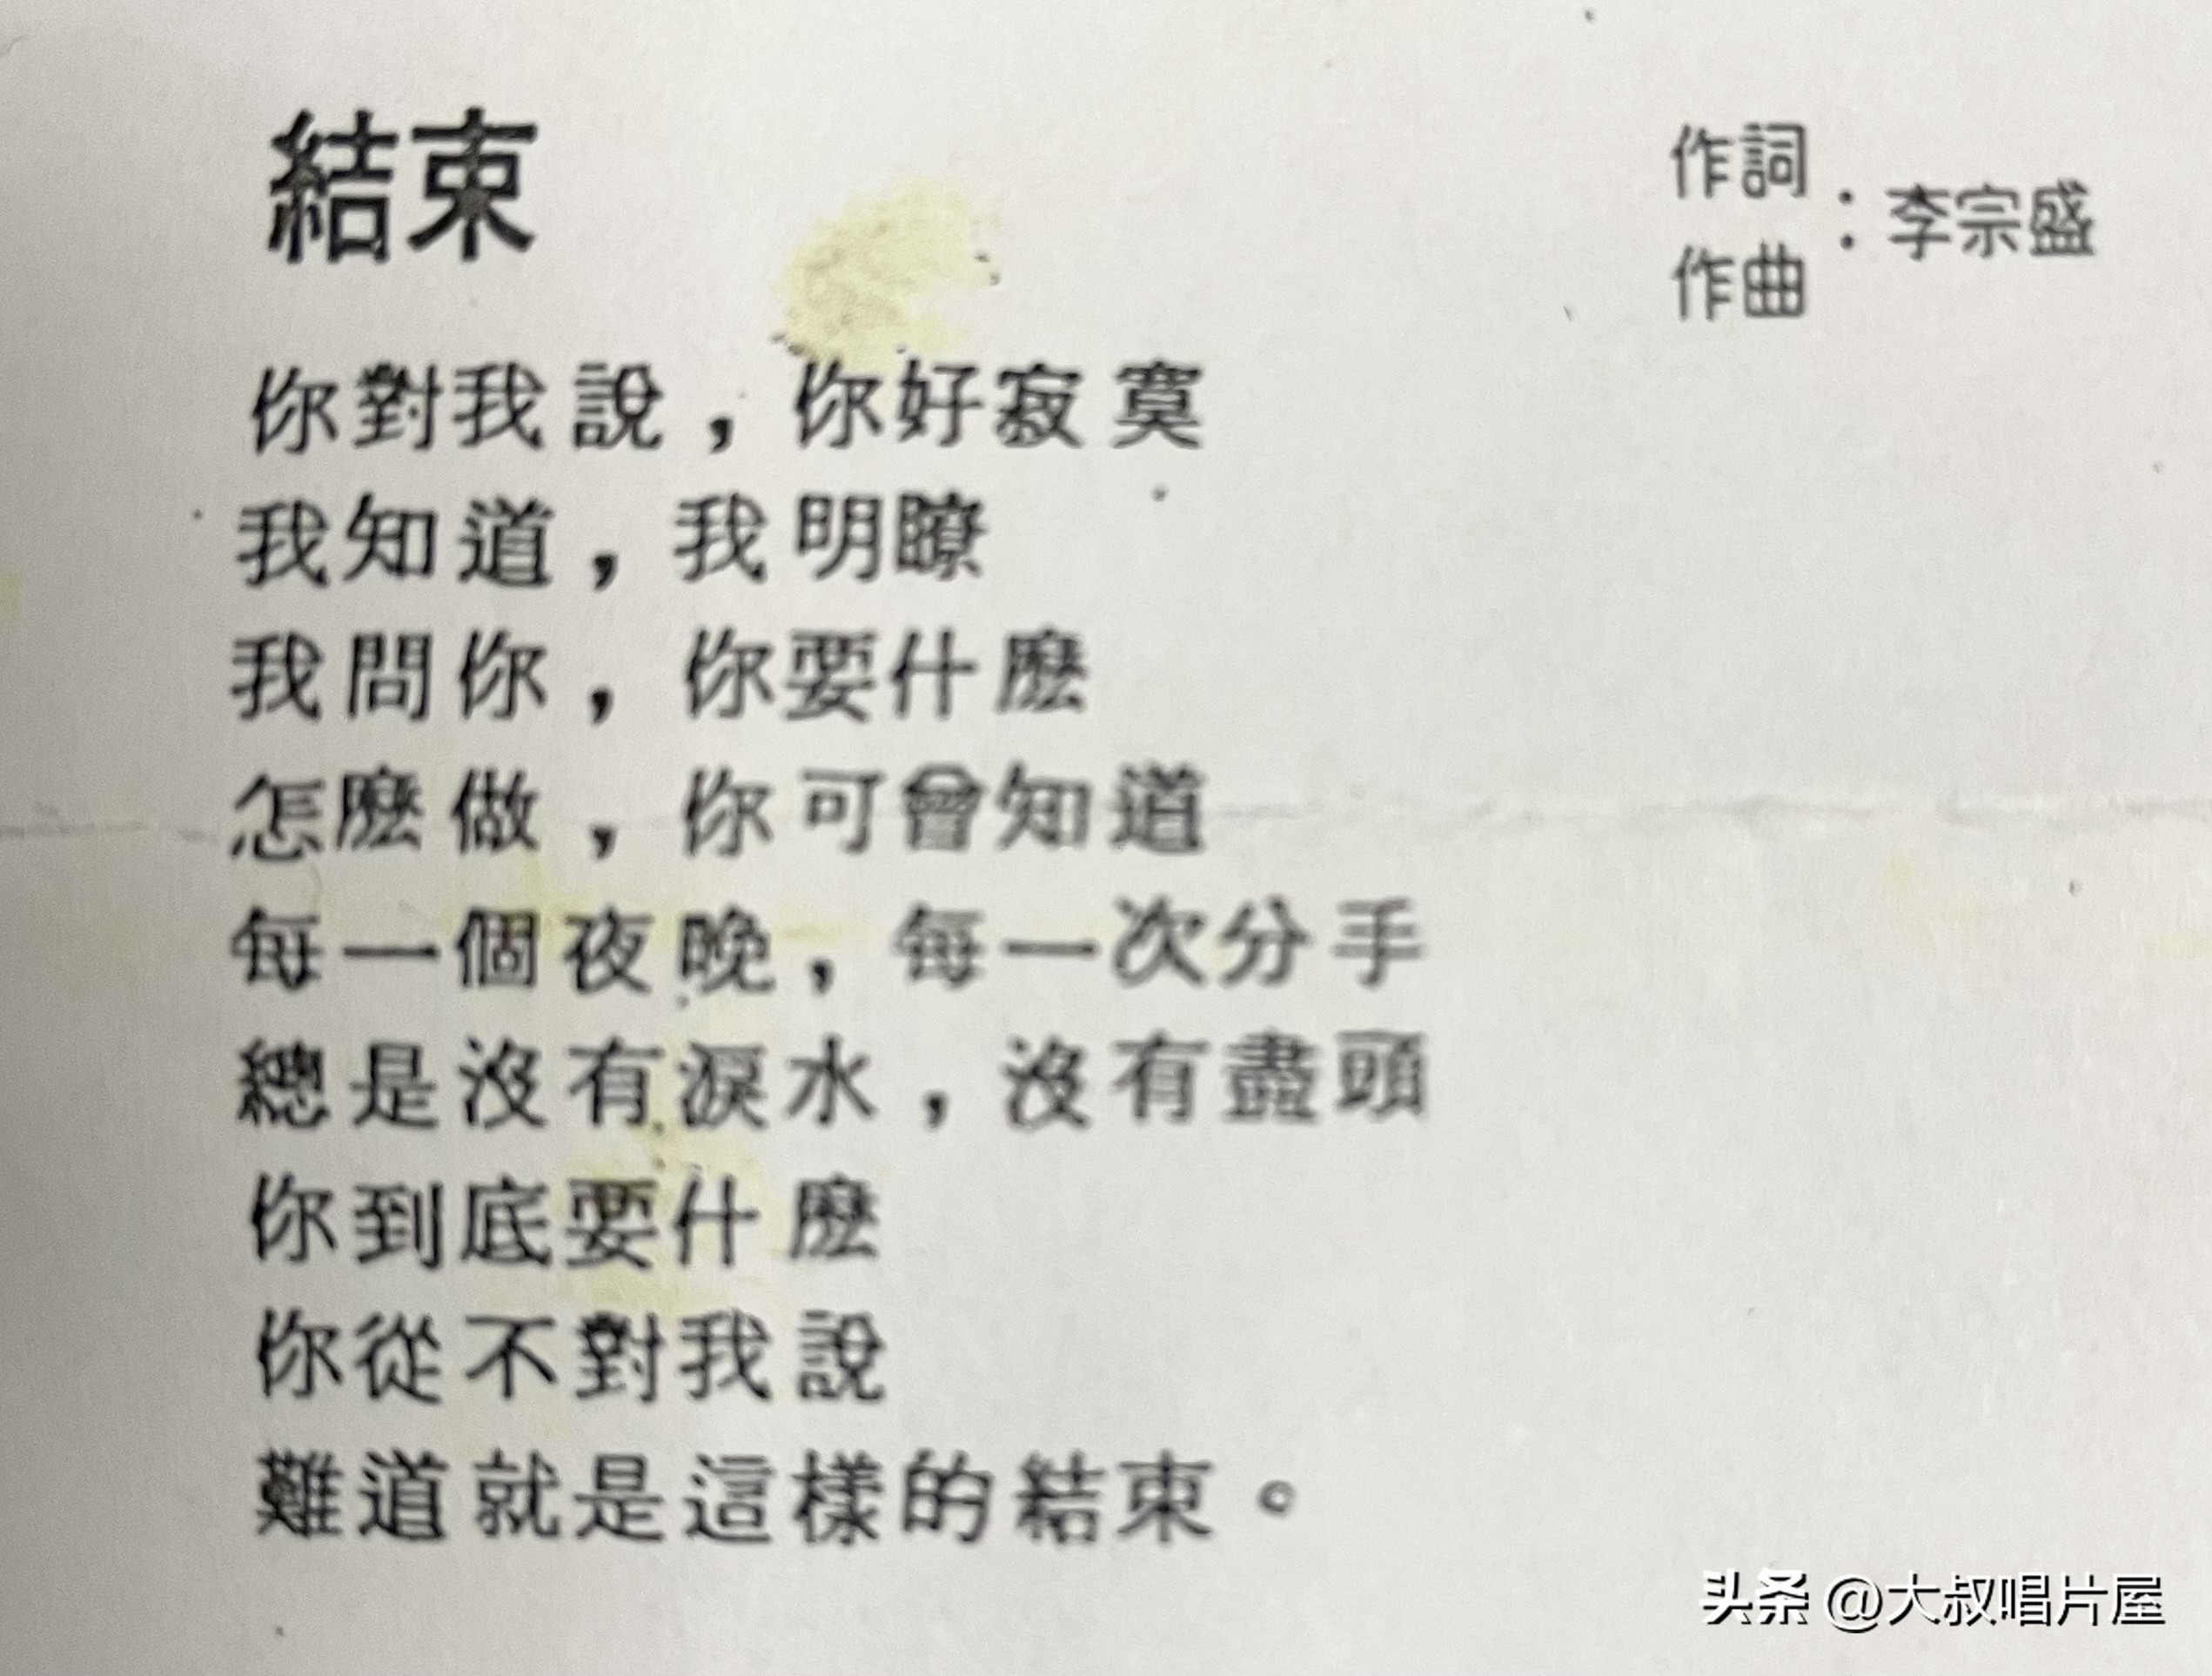 結束
作詞
作曲
:李宗盛
你對我說,你好寂寞
我知道,我明瞭
我問你,你要什麼
怎麼做,你可曾知道
每一個夜晚,每一次分手
總是沒有淚水,沒有盡頭
你到底要什麼
你從不對我說
難道就是這樣的結束。
头条 @大叔唱片屋